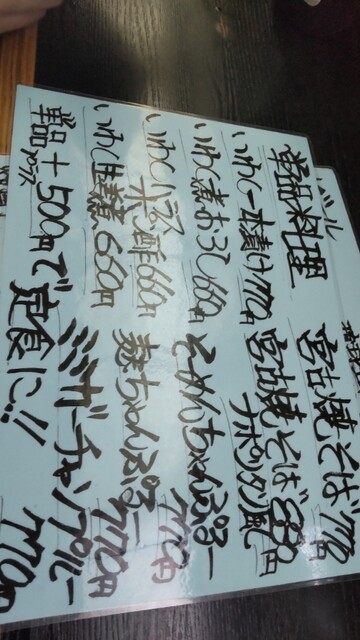 単品料理
いわし一本漬け 770円
いわし煮おろし 660円
いわし
酢 660円
いわし生姜煮 660円
単品プラス+500円で定食に!!
宮古焼そば 770円
宮古焼そば 880円
ナポリタン風
そーめんちゃんぷるー 770円
麩ちゃんぷるー 770円
ミミガーチャンプルー 770円